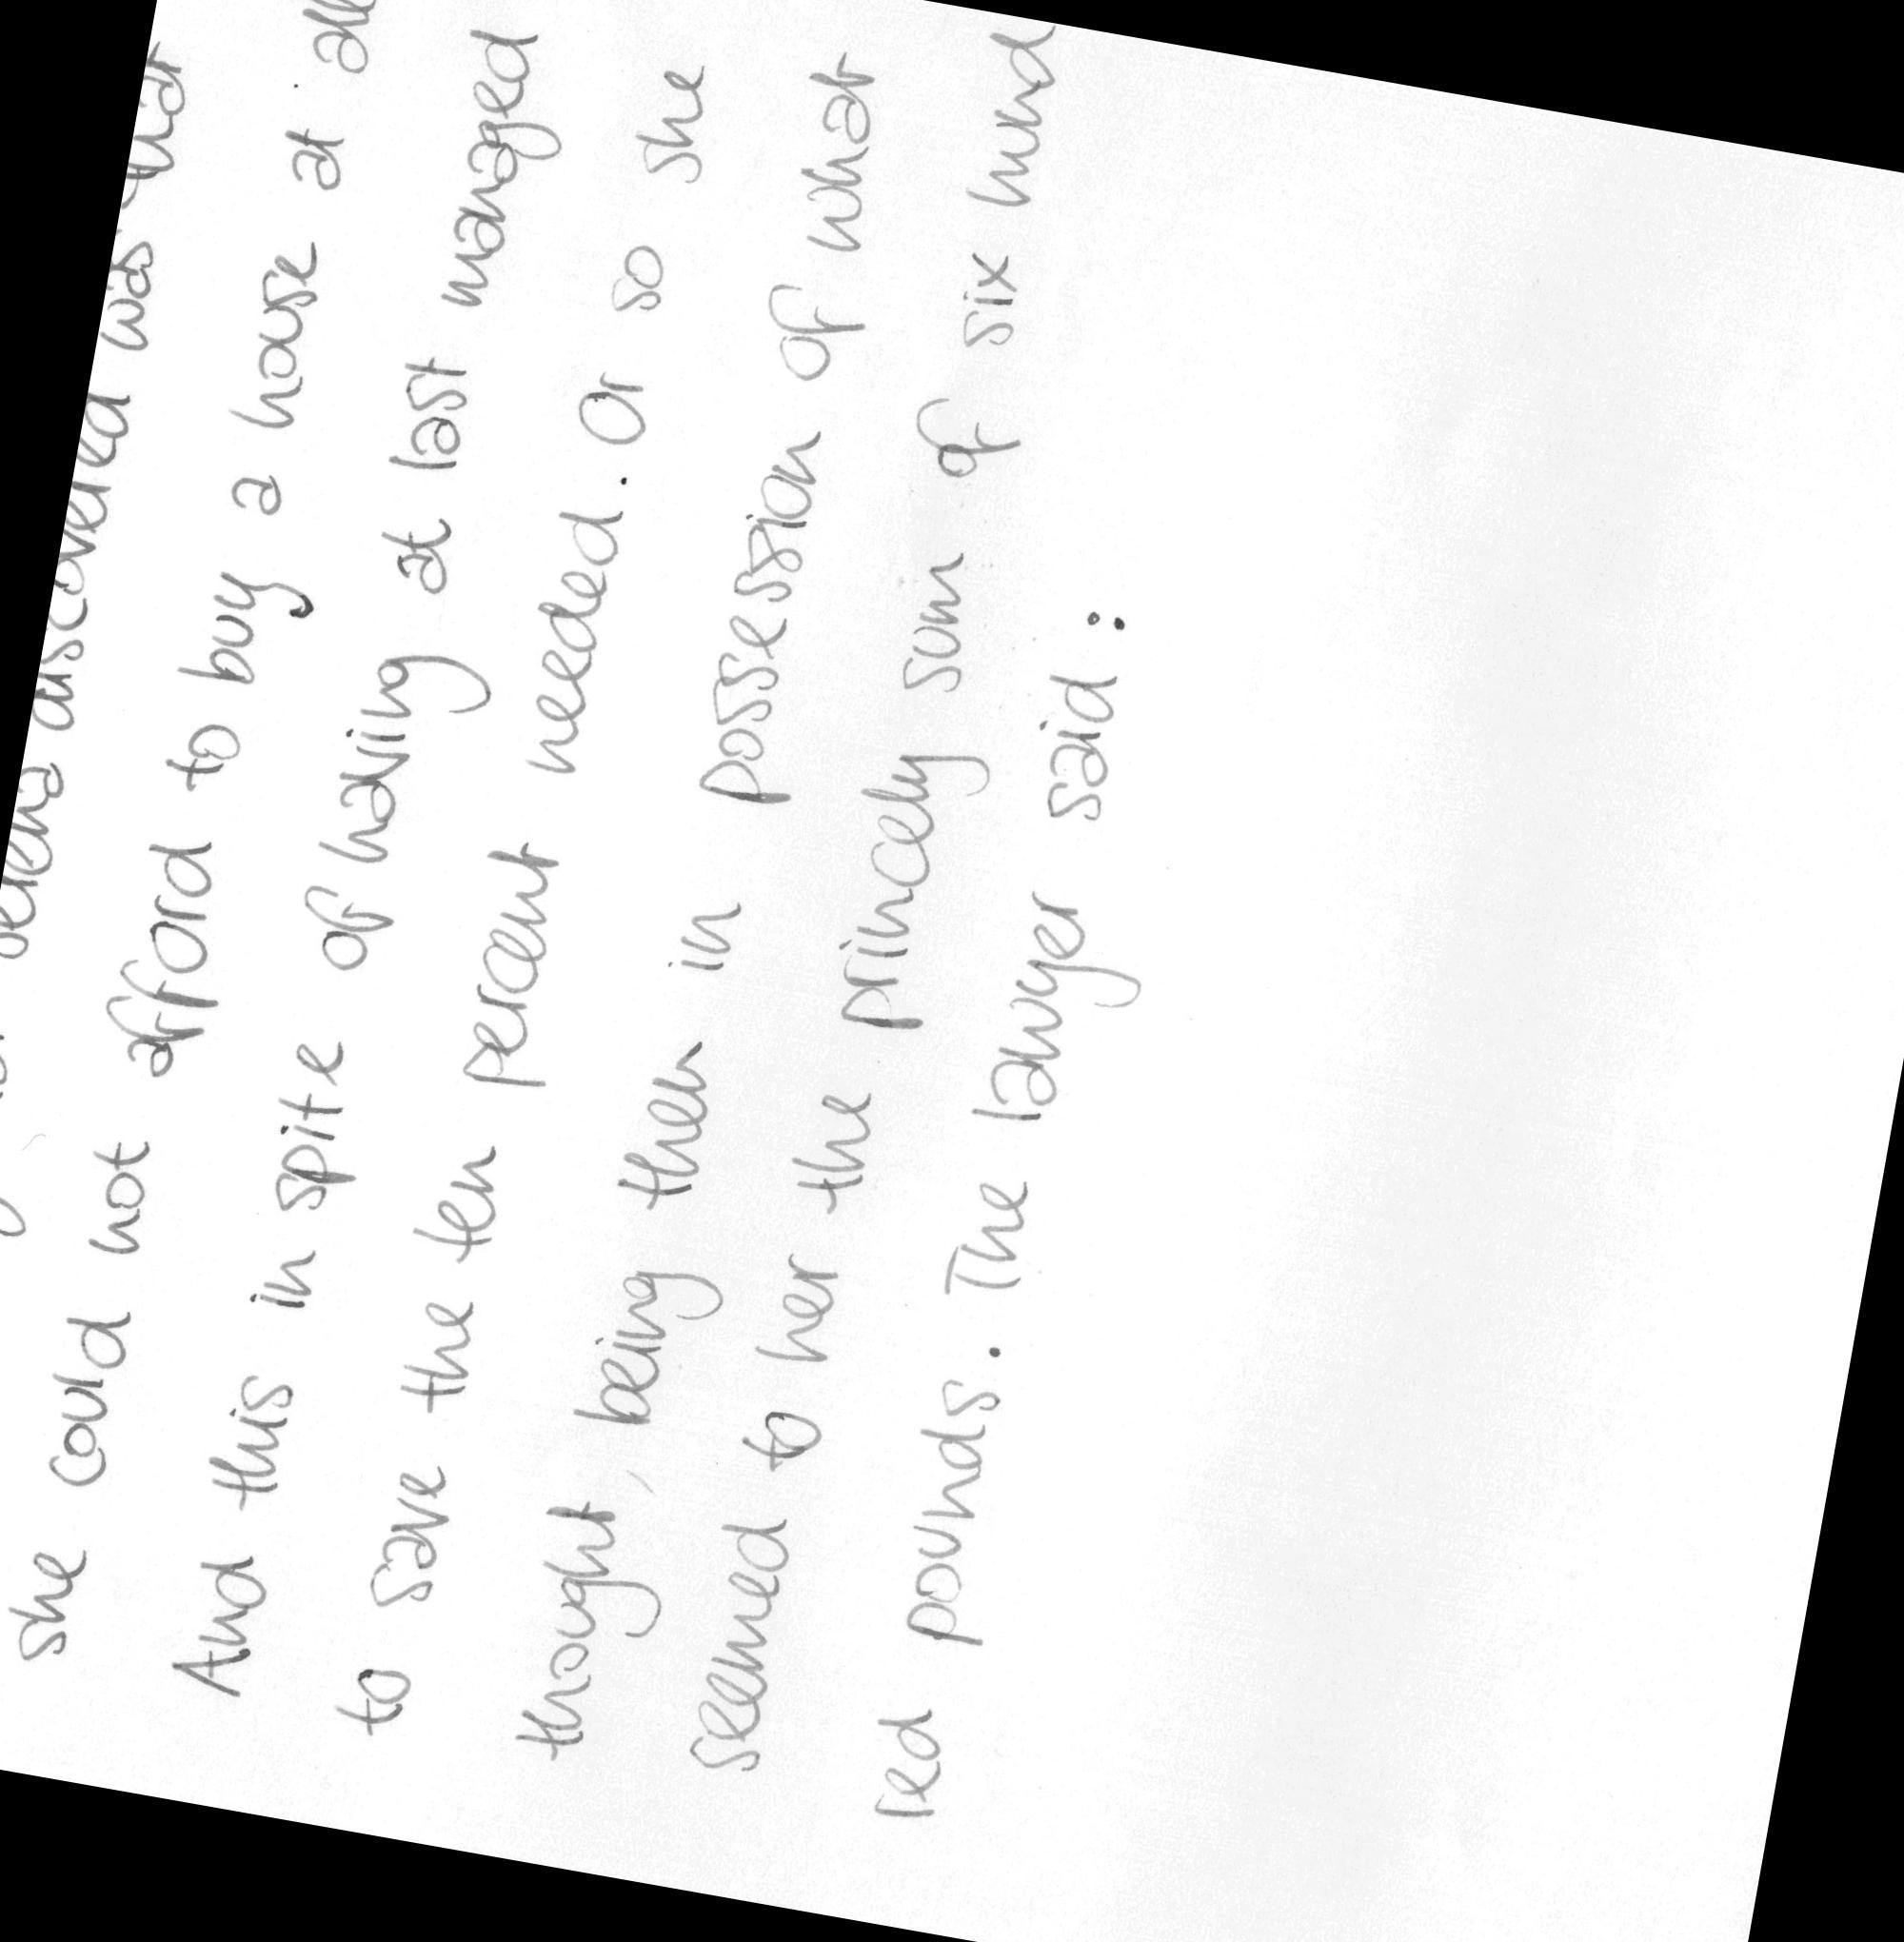 discovered was that
she could not afford to buy a house at all.
And this in spite of having at last managed
to save the ten percent needed. Or so she
thought, being then in possession of what
seemed to her the princely sum of six hund
red pounds. The lawyer said: